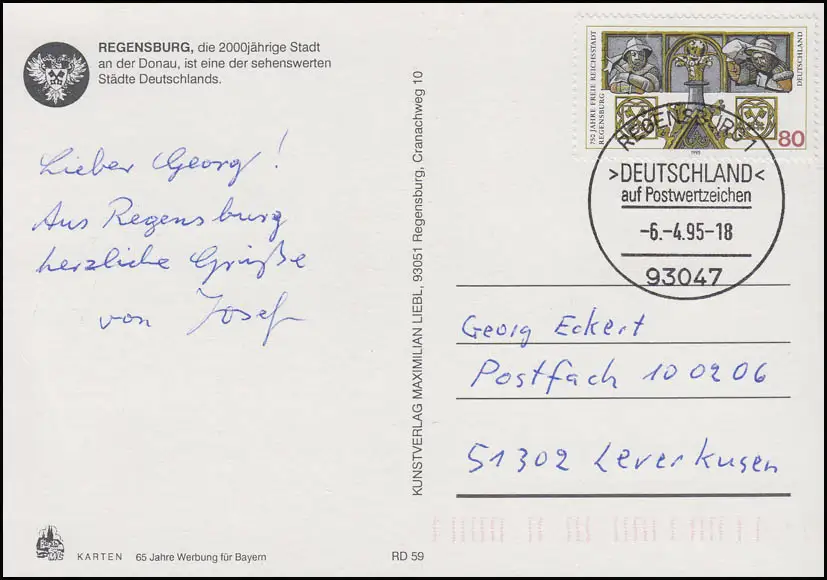 REGENSBURG, die 2000jährige Stadt
an der Donau, ist eine der sehenswerten
Städte Deutschlands.
Lieber Georg!
Aus Regensburg
herzliche Grüße
von Josef
KARTEN 65 Jahre Werbung für Bayern
RD 59
KUNSTVERLAG MAXIMILIAN LIEBL, 93051 Regensburg, Cranachweg 10
750 JAHRE FREIE REICHSSTADT
REGENSBURG
DEUTSCHLAND
80
1995
REGENSBURG 1
>DEUTSCHLAND<
auf Postwertzeichen
-6.-4.95-18
93047
Georg Eckert
Postfach 100206
51302 Leverkusen